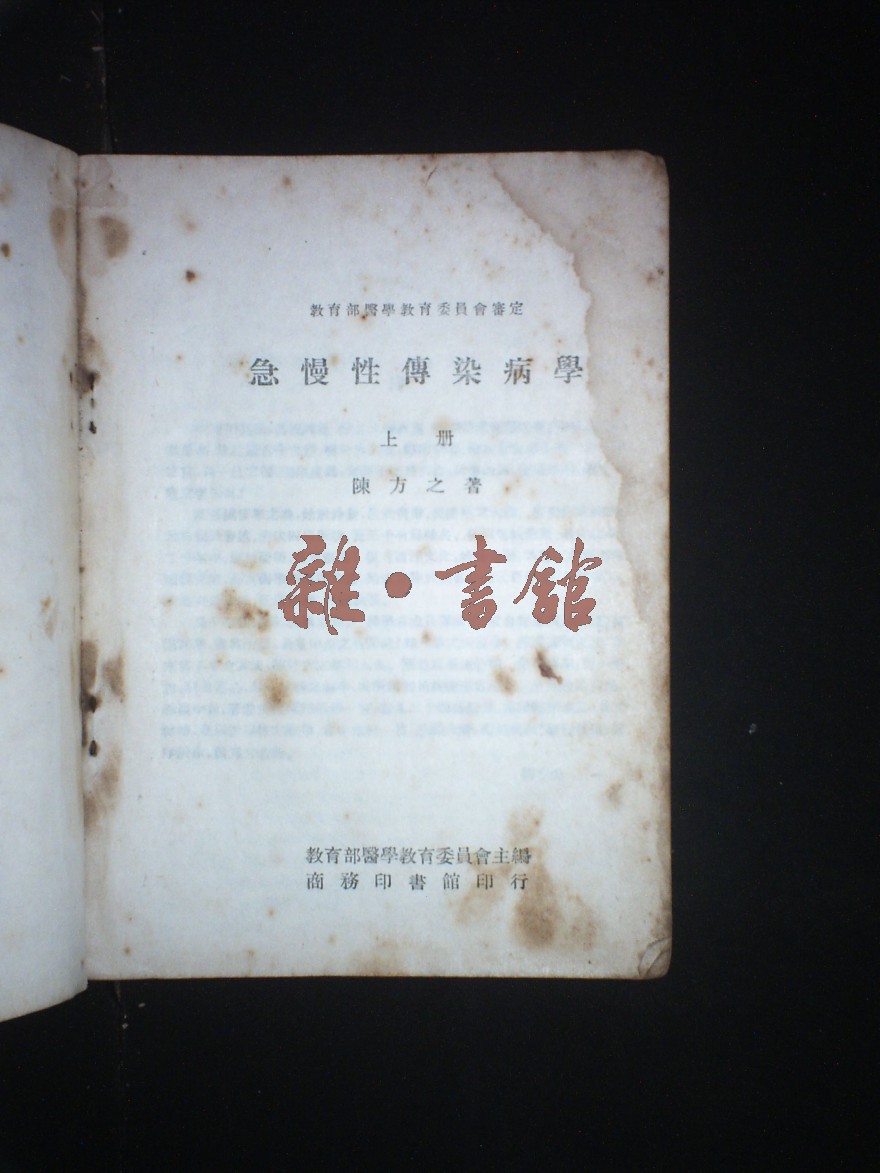 教育部醫學教育委員會審定
急慢性傳染病學
上册
陳方之著
雜·書館
教育部醫學教育委員會主編
商務印書館印行